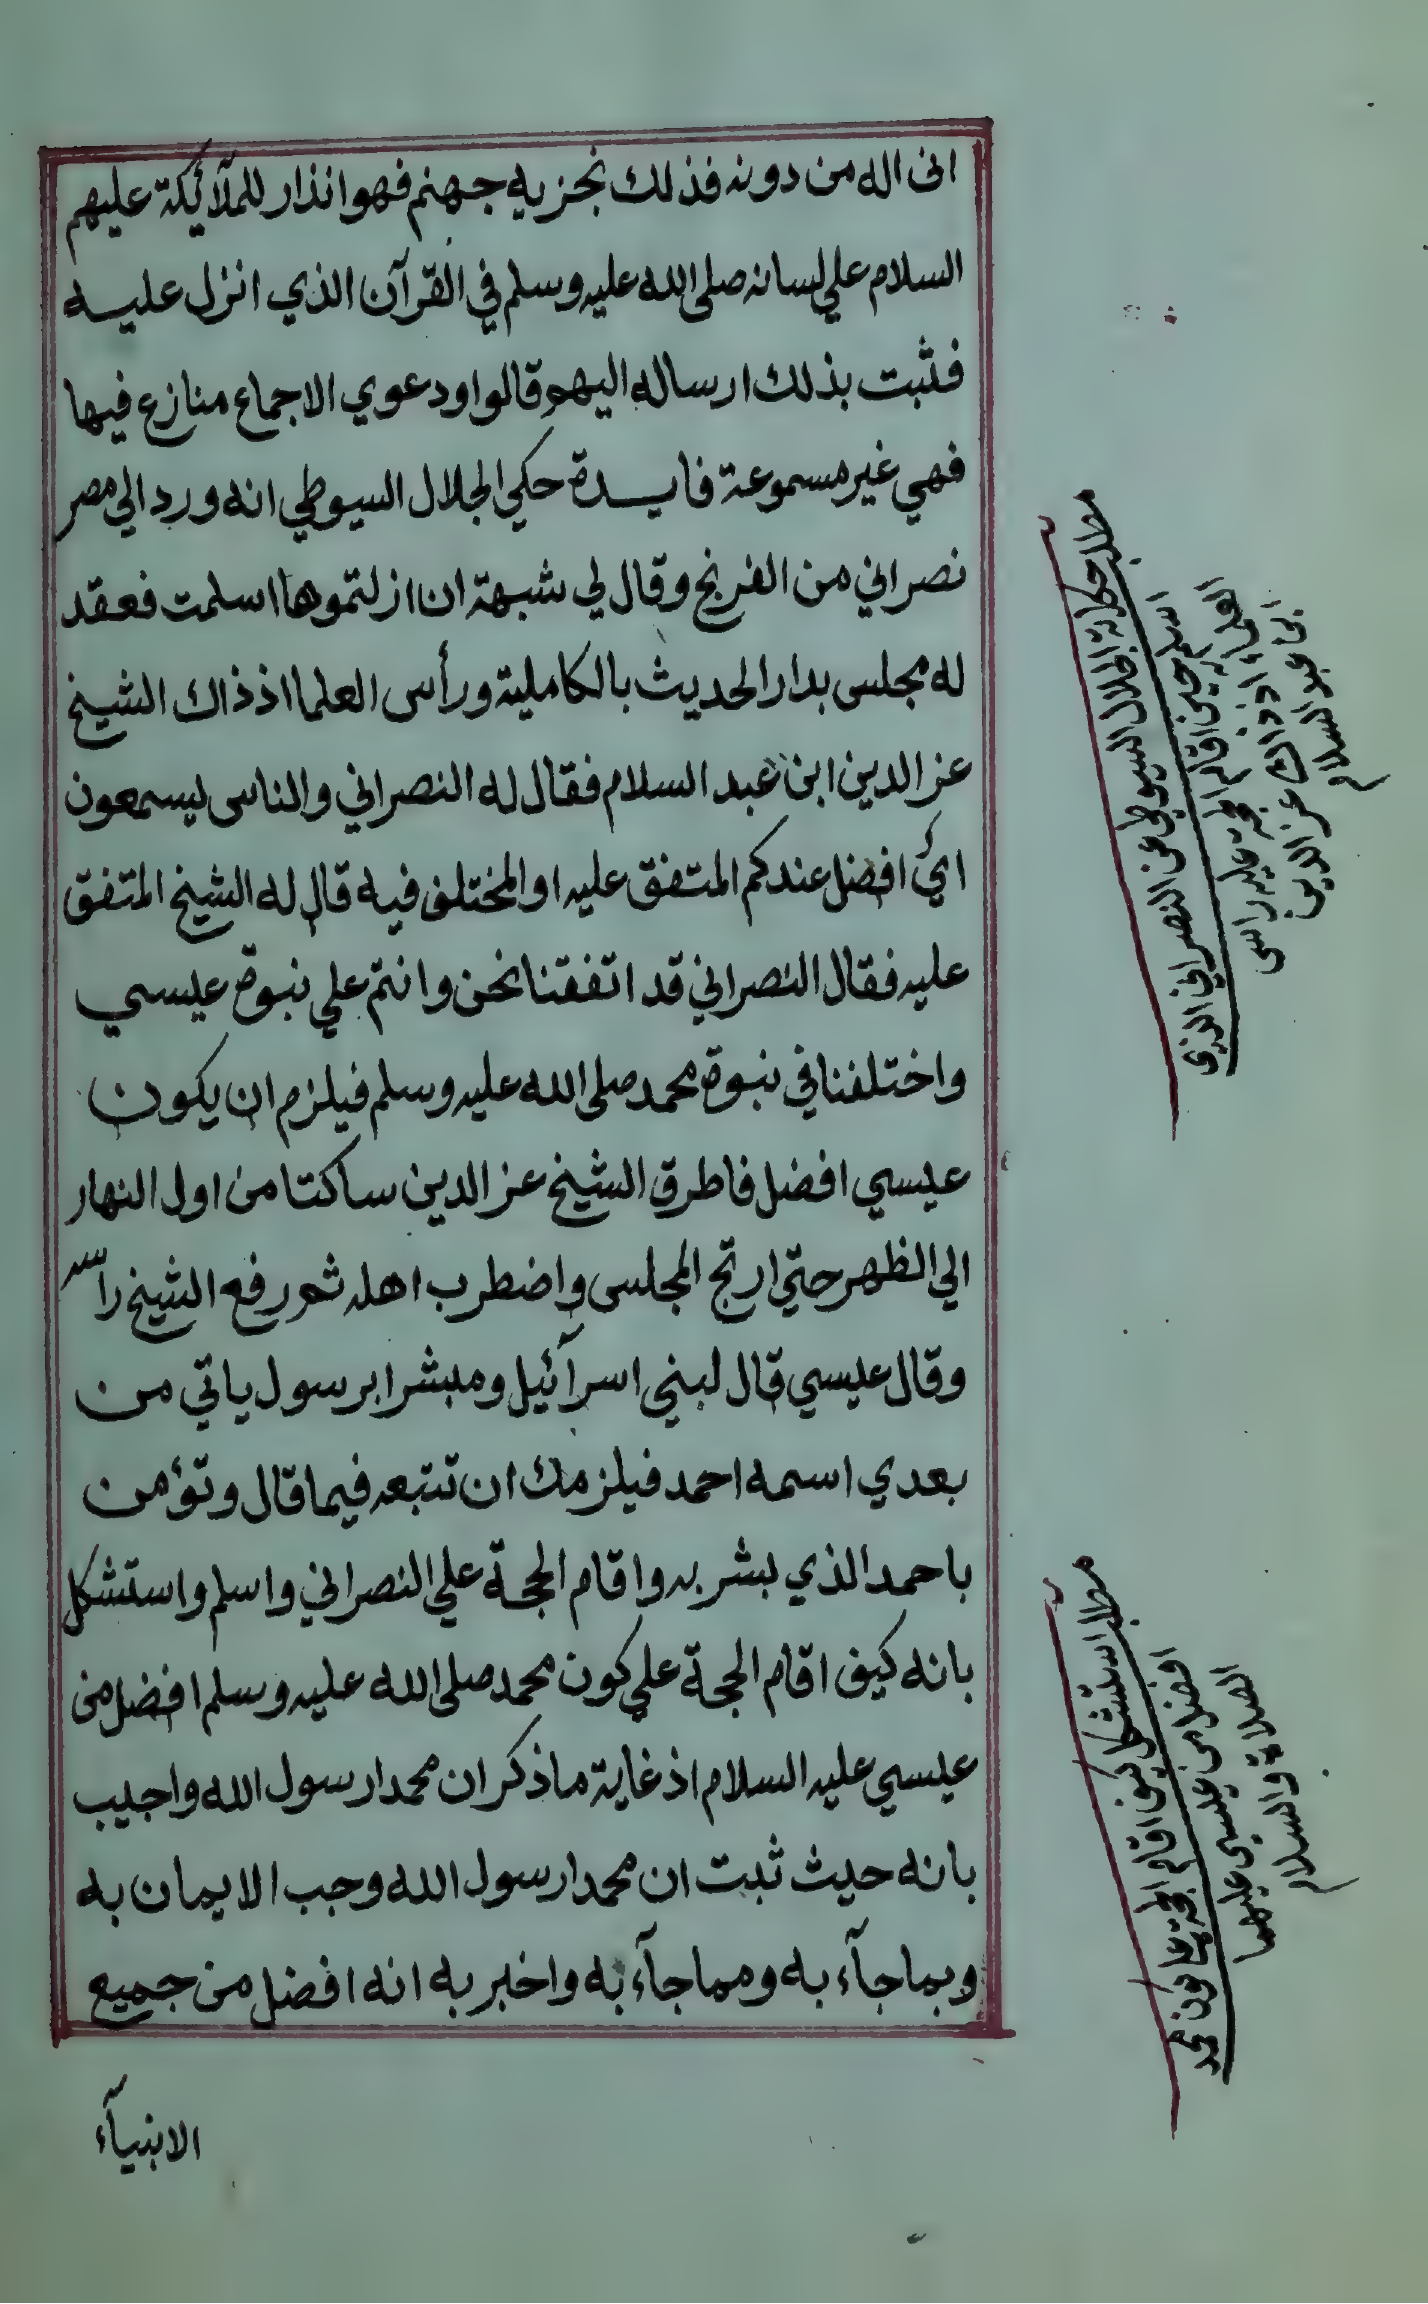 اني اله من دونه فذلك نجزيه جهنم فهو انذار للملآئكة عليهم
السلام علي لسانه صلى الله عليه وسلم في القرآن الذي انزل عليه
فثبت بذلك ارساله اليهم قالوا ودعوي الاجماع منازع فيها
فهي غير مسموعة فايدة حكي الجلال السيوطي انه ورد الي مصر
نصراني من الفرنج وقال لي شبهة ان ازلتموها اسلمت فعقد
له مجلس بدار الحديث بالكاملية ورأس العلما اذ ذاك الشيخ
عز الدين ابن عبد السلام فقال له النصراني والناس يسمعون
ايُّ افضل عندكم المتفق عليه او المختلف فيه قال له الشيخ المتفق
عليه فقال النصراني قد اتفقنا نحن وانتم علي نبوة عيسي
واختلفنا في نبوة محمد صلى الله عليه وسلم فيلزم ان يكون
عيسي افضل فاطرق الشيخ عز الدين ساكتا من اول النهار
الي الظهر حتي ارتج المجلس واضطرب اهله ثم رفع الشيخ راسه
وقال عيسي قال لبني اسرآئيل ومبشرا برسول ياتي من
بعدي اسمه احمد فيلزمك ان تتبعه فيما قال وتؤمن
باحمد الذي بشر به واقام الحجة علي النصراني واسلم واستشكل
بانه كيف اقام الحجة علي كون محمد صلى الله عليه وسلم افضل من
عيسي عليه السلام اذ غاية ما ذكر ان محمدا رسول الله واجيب
بانه حيث ثبت ان محمدا رسول الله وجب الايمان به
وبما جآء به ومما جآء به واخبر به انه افضل من جميع
الانبيآء
مطلب حكاية الجلال السيوطي عن النصراني الذي
اسلم حين اقام الحجة عليه راس
العلماء اذ ذاك عز الدين
ابن عبد السلام
مطلب استشكل كيف اقام الحجة علي كون محمد
افضل من عيسي عليهما
الصلاة والسلام